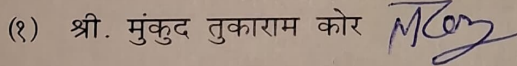 (१) श्री. मुंकुद तुकाराम कोर